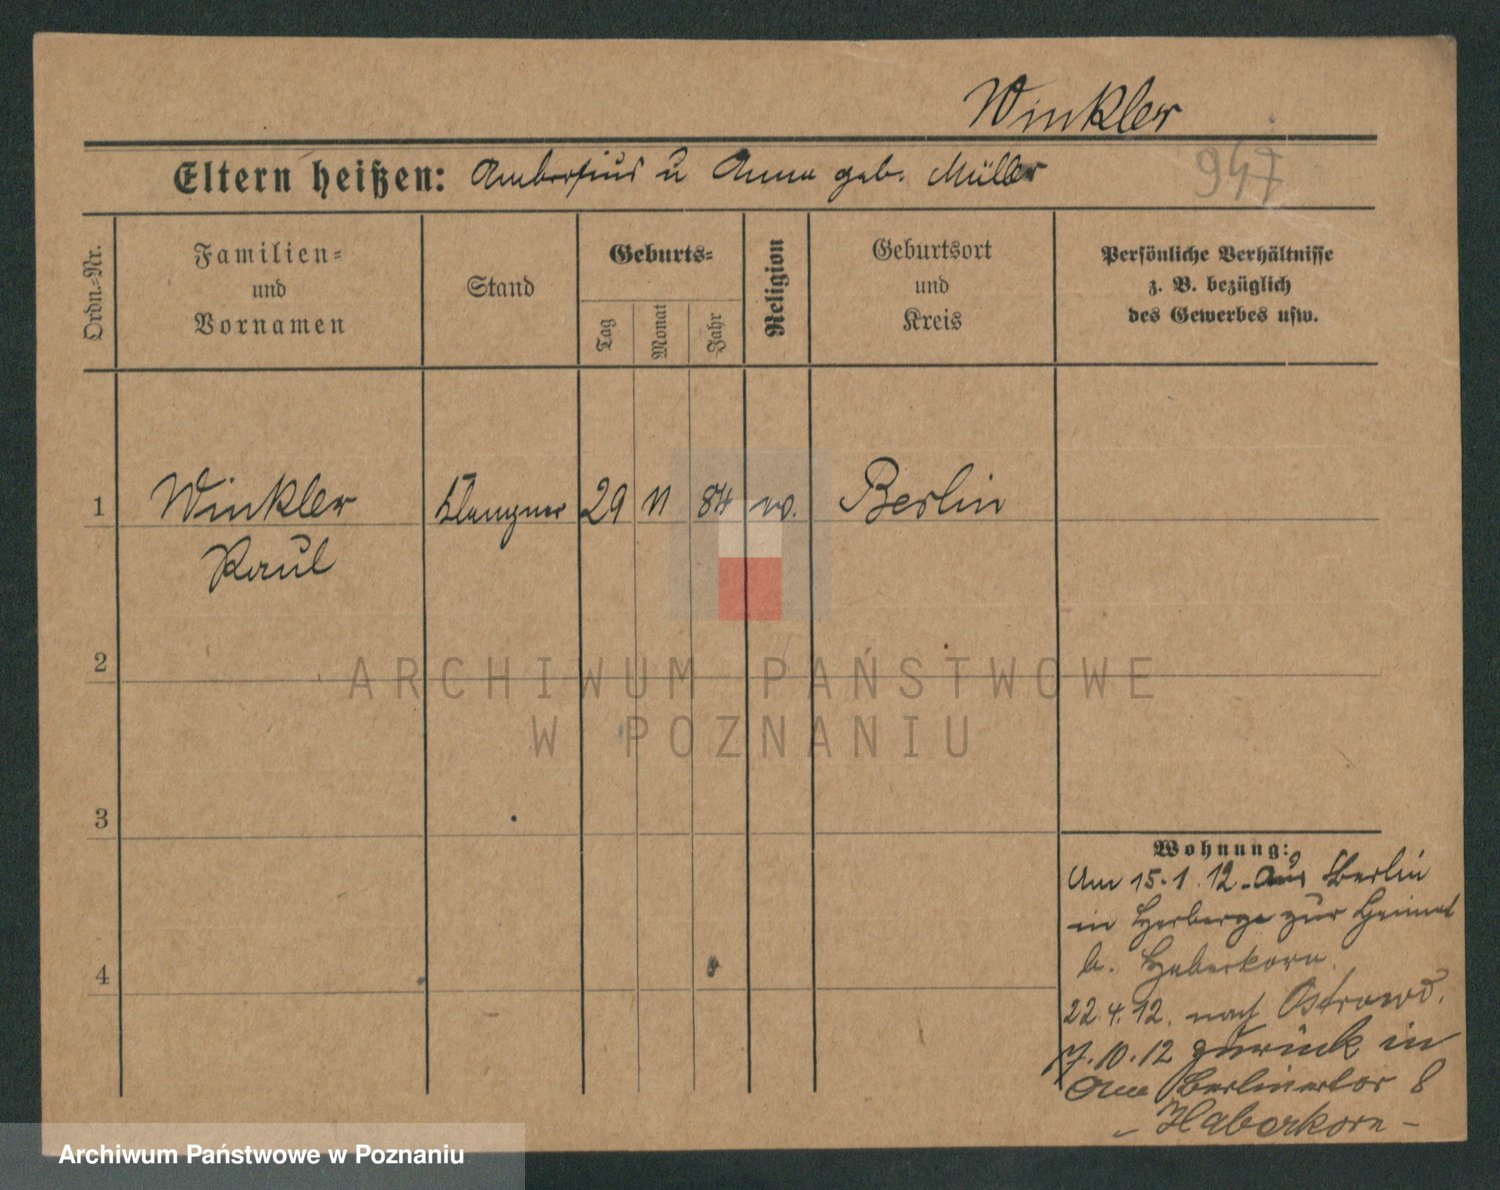 Winkler
Eltern heißen: Ambrosius u Anna geb. Müller
947
Ordn.-Nr.
Familien-
und
Vornamen
Stand
Geburts-
Tag
Monat
Jahr
Religion
Geburtsort
und
Kreis
Persönliche Verhältnisse
z. B. bezüglich
des Gewerbes usw.
1 Winkler Klempner 29 11 84 Berlin
Paul
2
3
4
Wohnung:
Am 15.1.12 aus Berlin
in Herberge zur Heimat
b. Haberkorn.
22.4.12. nach Ostrowo.
7.10.12 zurück in
Am Berlinertor 8
- Haberkorn -
ARCHIWUM PAŃSTWOWE
W POZNANIU
Archiwum Państwowe w Poznaniu